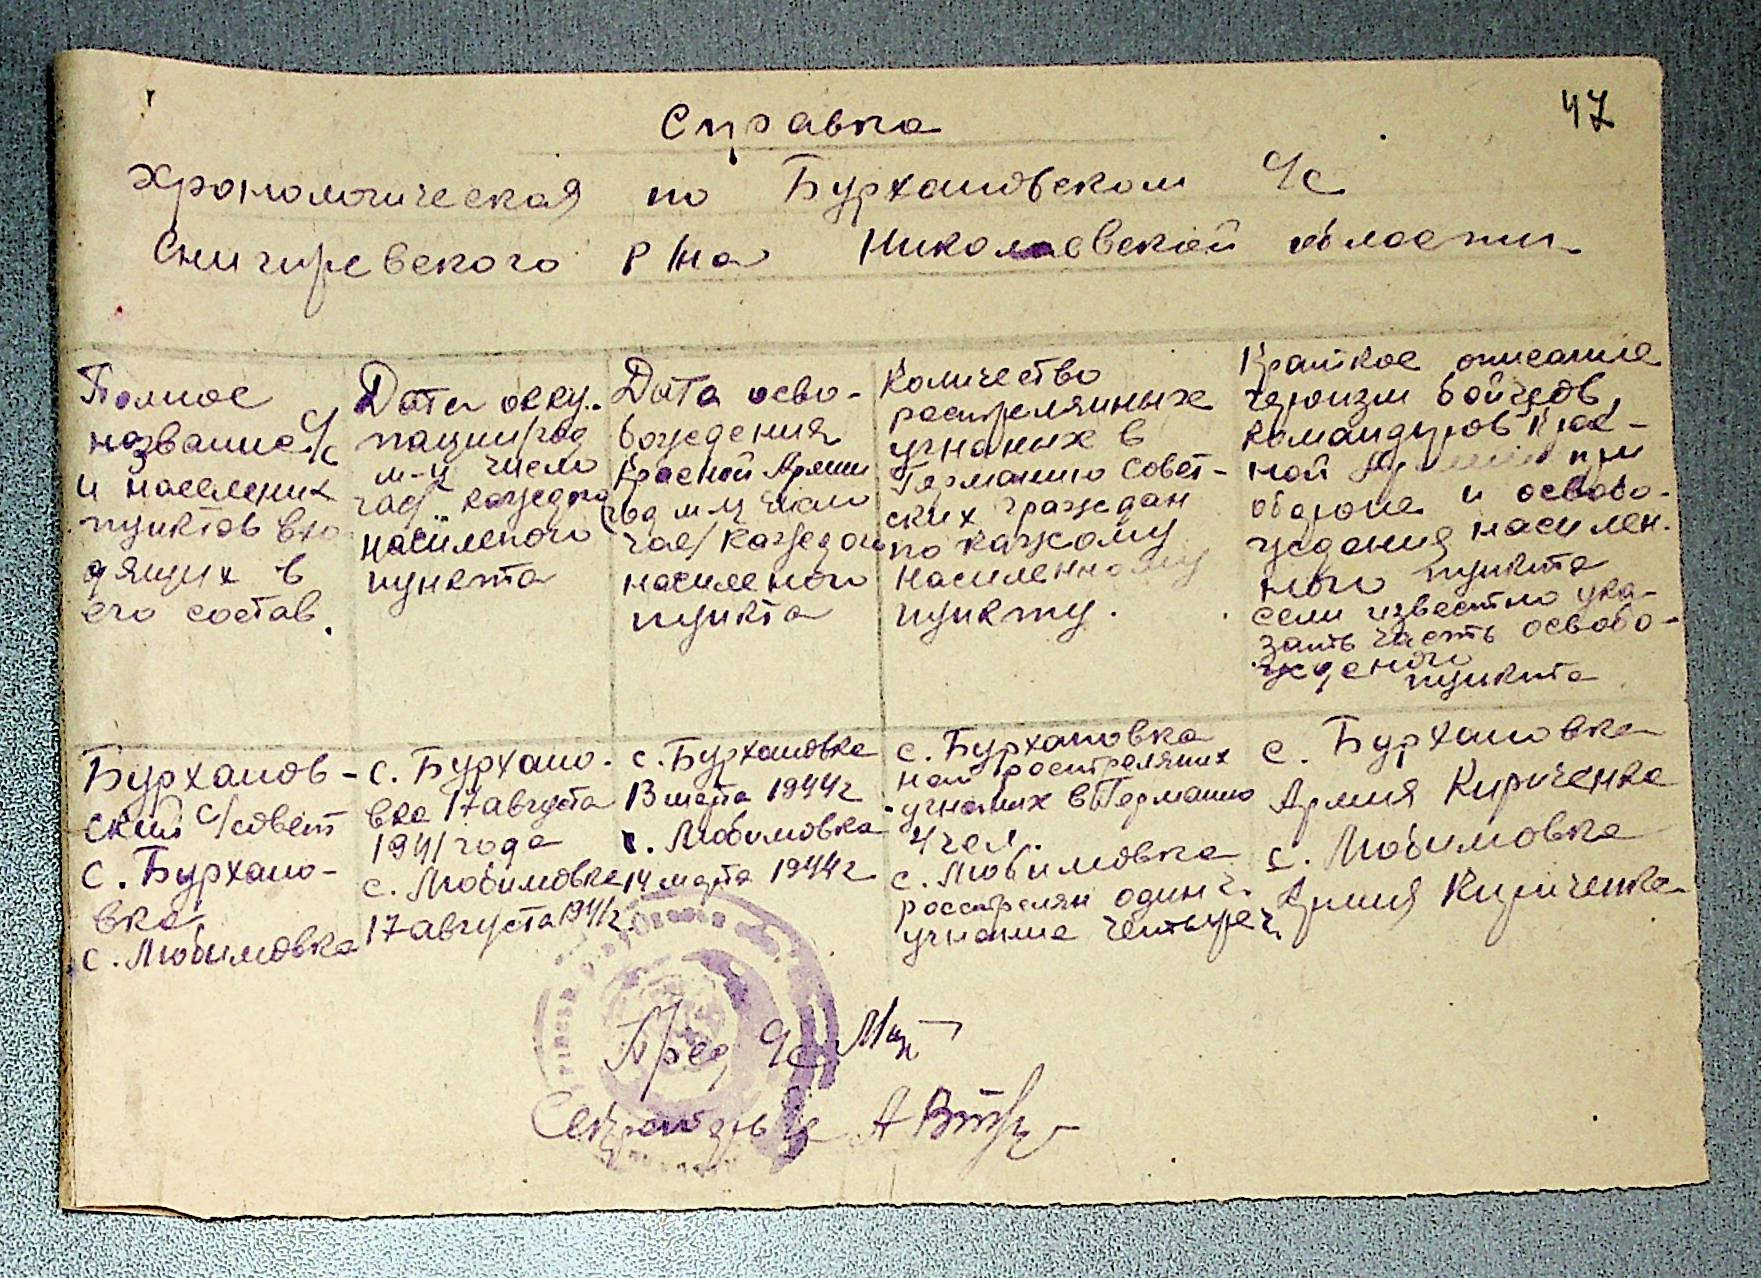 47
Справка
Хронологическая по Бурхановском с/с
Снигиревского р/на Николаевской области
Полное
название с/с
и населених
пунктов вхо
дящих в
его состав.
Дата окку-
пации/год
м-ц число
час/ каждого
насиленого
пункта
Дата осво-
бождения
Красной Армии
(год м-ц число
час/ каждого
насиленого
пункта
Количество
расстрелянных
угнаных в
Германию Совет-
ских граждан
по кажому
насиленному
пункту.
Краткое описание
героизм бойцов,
командиров Крас-
ной Армии при
обороне и освобо-
ждения насилен.
ного пункта
если известно ука-
зать часть освобо-
жденого
пункта
Бурханов-
ский с/совет
с. Бурхано-
вка
с. Любимовка
с. Бурхано-
вка 17 августа
1941 года
с. Любимовка
17 августа 1941 г
с. Бурхановка
13 марта 1944 г
с. Любимовка
14 марта 1944 г
с. Бурхановка
нет расстреляних
угнаных в Германию
4 чел.
с. Любимовка
расстрелян один ч.
угнание четыре ч.
с. Бурхановка
Армия Кириченка
с. Любимовка
Армия Кириченка
Пред с/с
Секретарь с/с